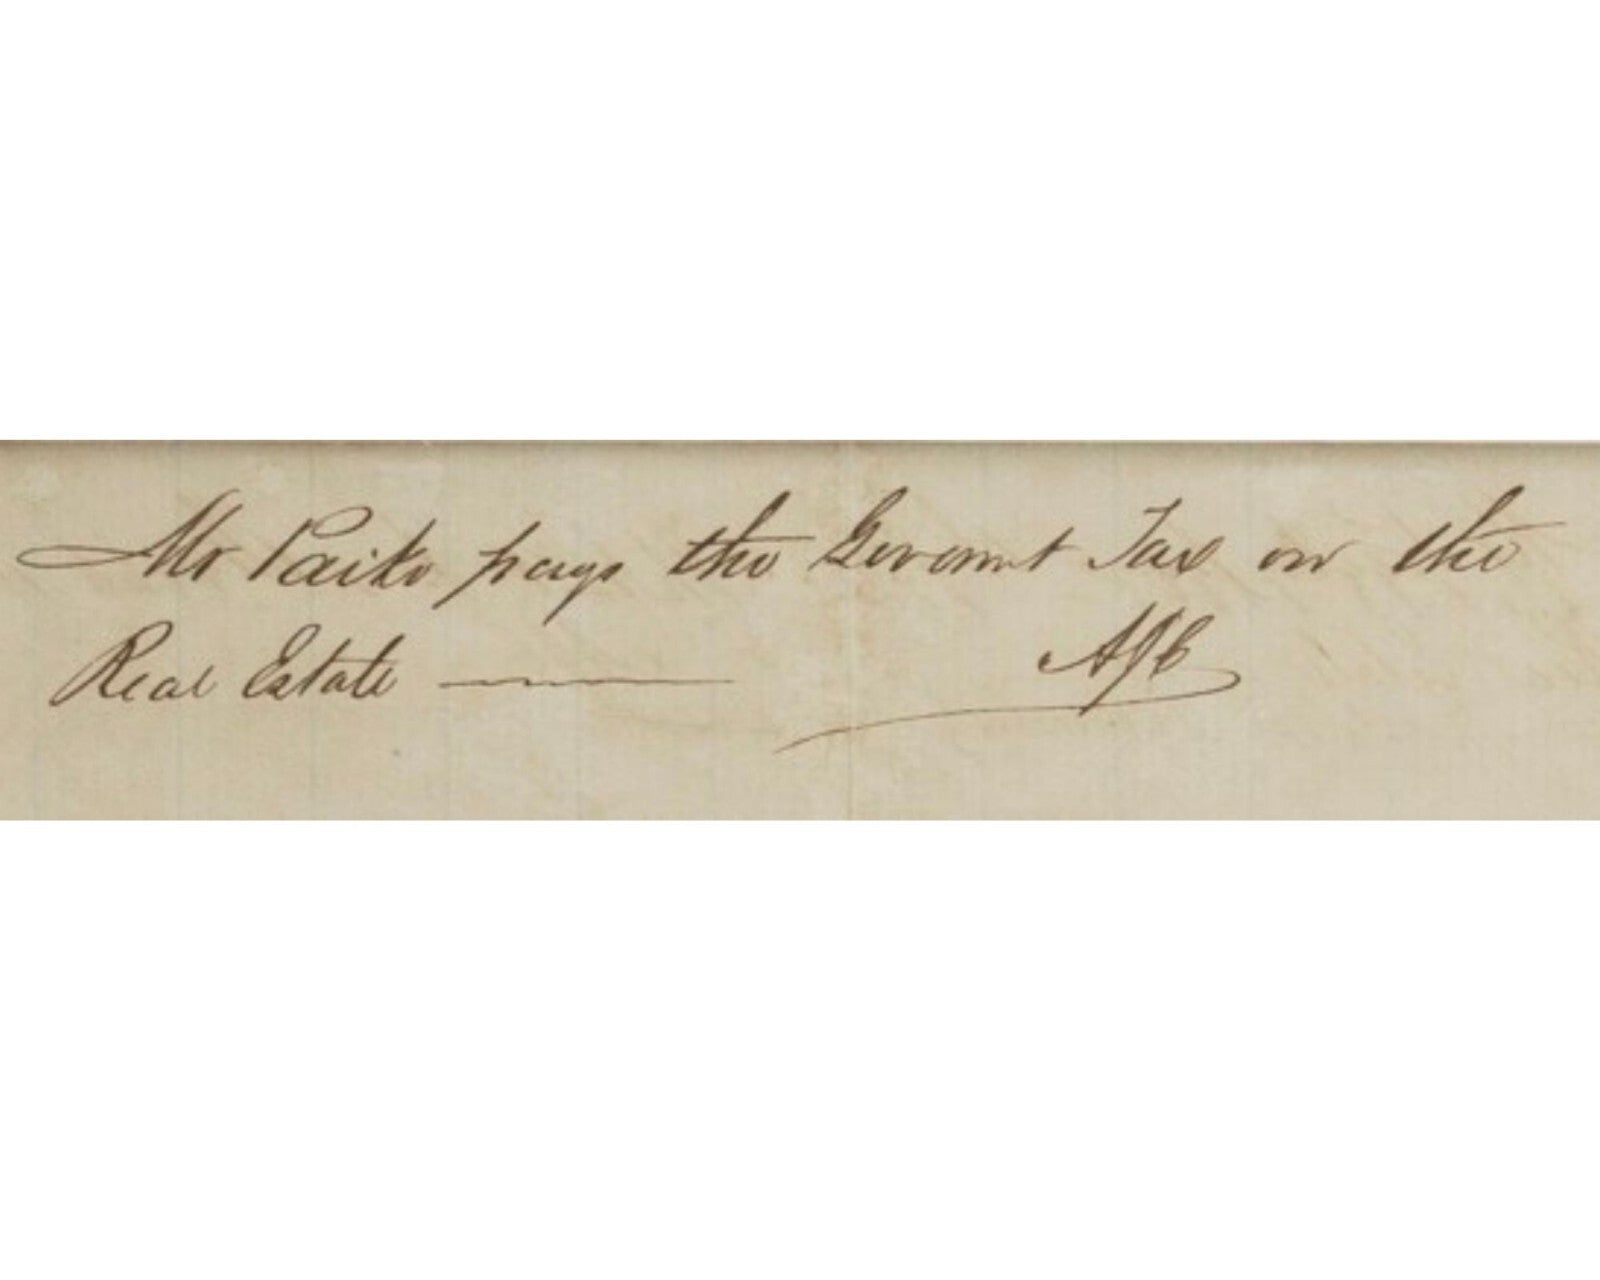 Mr Paike pays the Governmt Tax on the
Real Estate ——— AJB